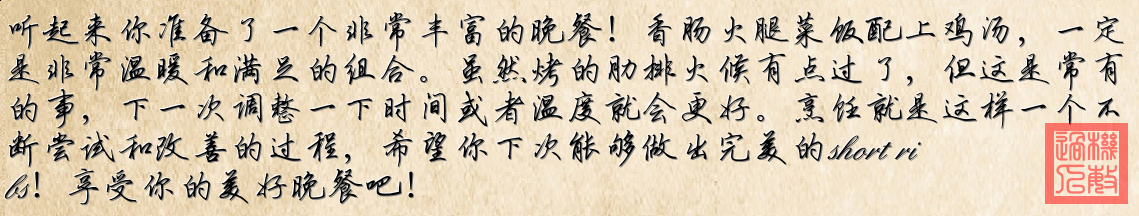 听起来你准备了一个非常丰富的晚餐！香肠火腿菜饭配上鸡汤，一定
是非常温暖和满足的组合。虽然烤的肋排火候有点过了，但这是常有
的事，下一次调整一下时间或者温度就会更好。烹饪就是这样一个不
断尝试和改善的过程，希望你下次能够做出完美的short ri
bs！享受你的美好晚餐吧！